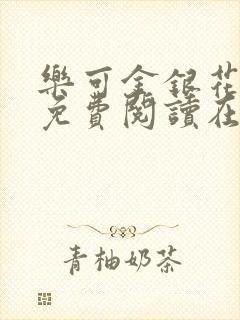 樂可金銀花
免費閱讀在
青柚奶茶